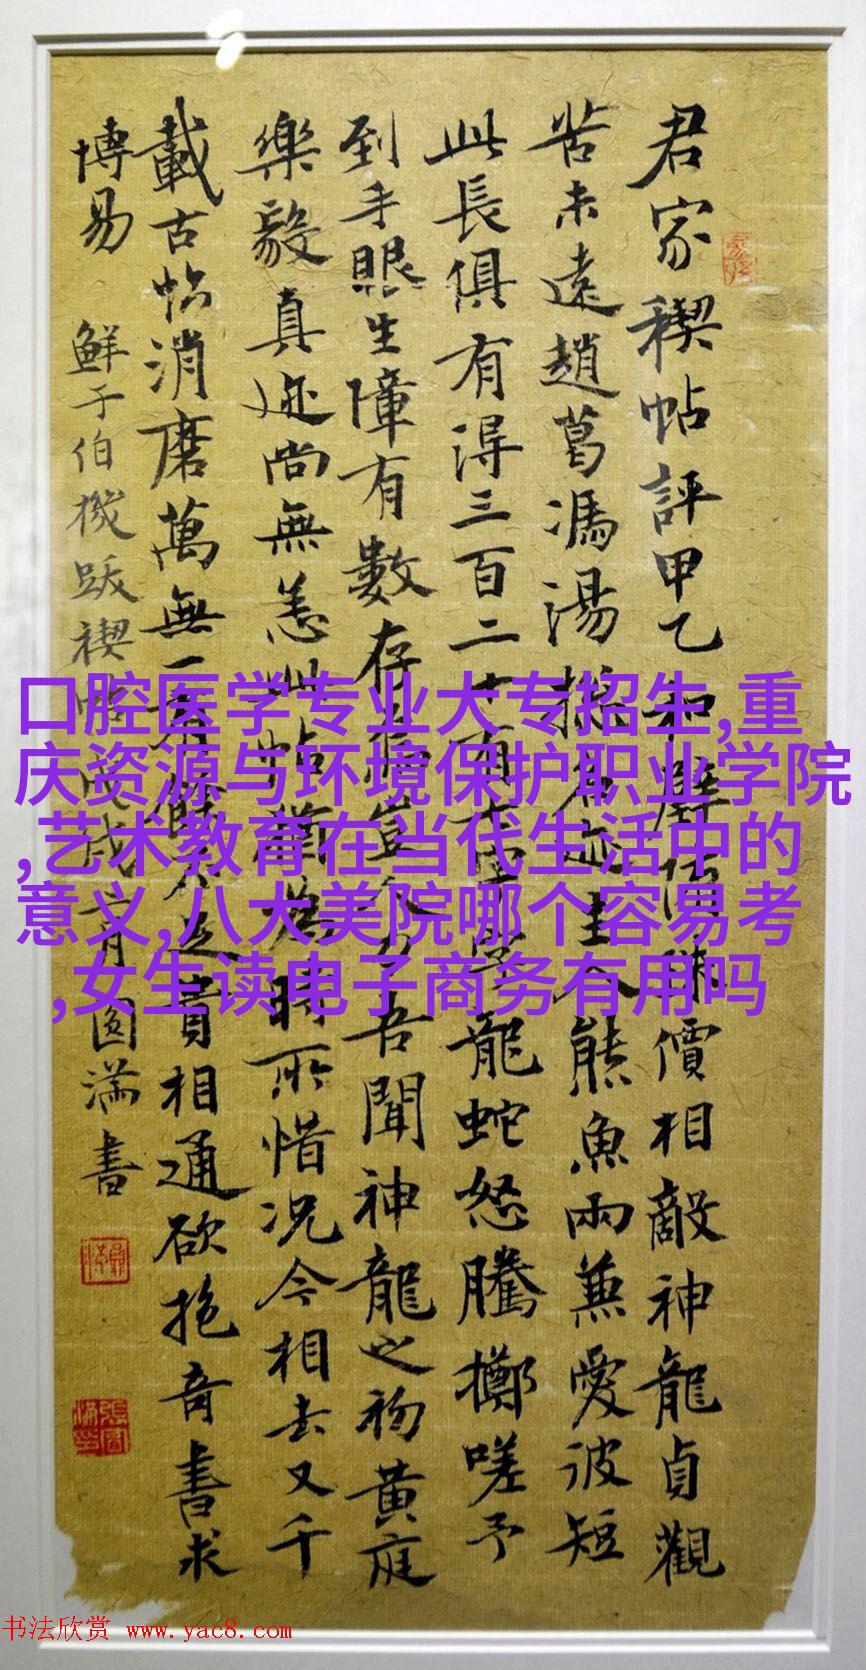 君家稧帖評甲乙和璧隋珠價相敵神龍貞觀
苦未遠趙葛馮湯揔名迹主人熊魚兩兼愛彼短
此長俱有得三百二十有龍蛇怒騰擲嗟予
到手眼生障有數存焉豈人力吾聞神龍之初黃庭
樂毅真迹尚無恙此帖猶為時所惜況今相去又千
載古帖消磨萬無一有餘不足貴相通欲抱奇書求
博易 鮮于伯機跋禊帖 戊戌 月 圓滿書
口腔医学专业大专招生,重
庆资源与环境保护职业学院
,艺术教育在当代生活中的
意义,八大美院哪个容易考
,女生读电子商务有用吗
书法欣赏 www.yac8.com